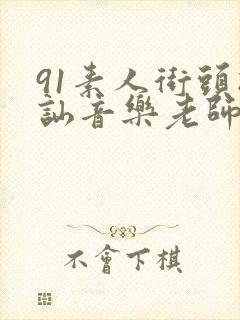 91素人街頭
訕音樂老師
不會下棋